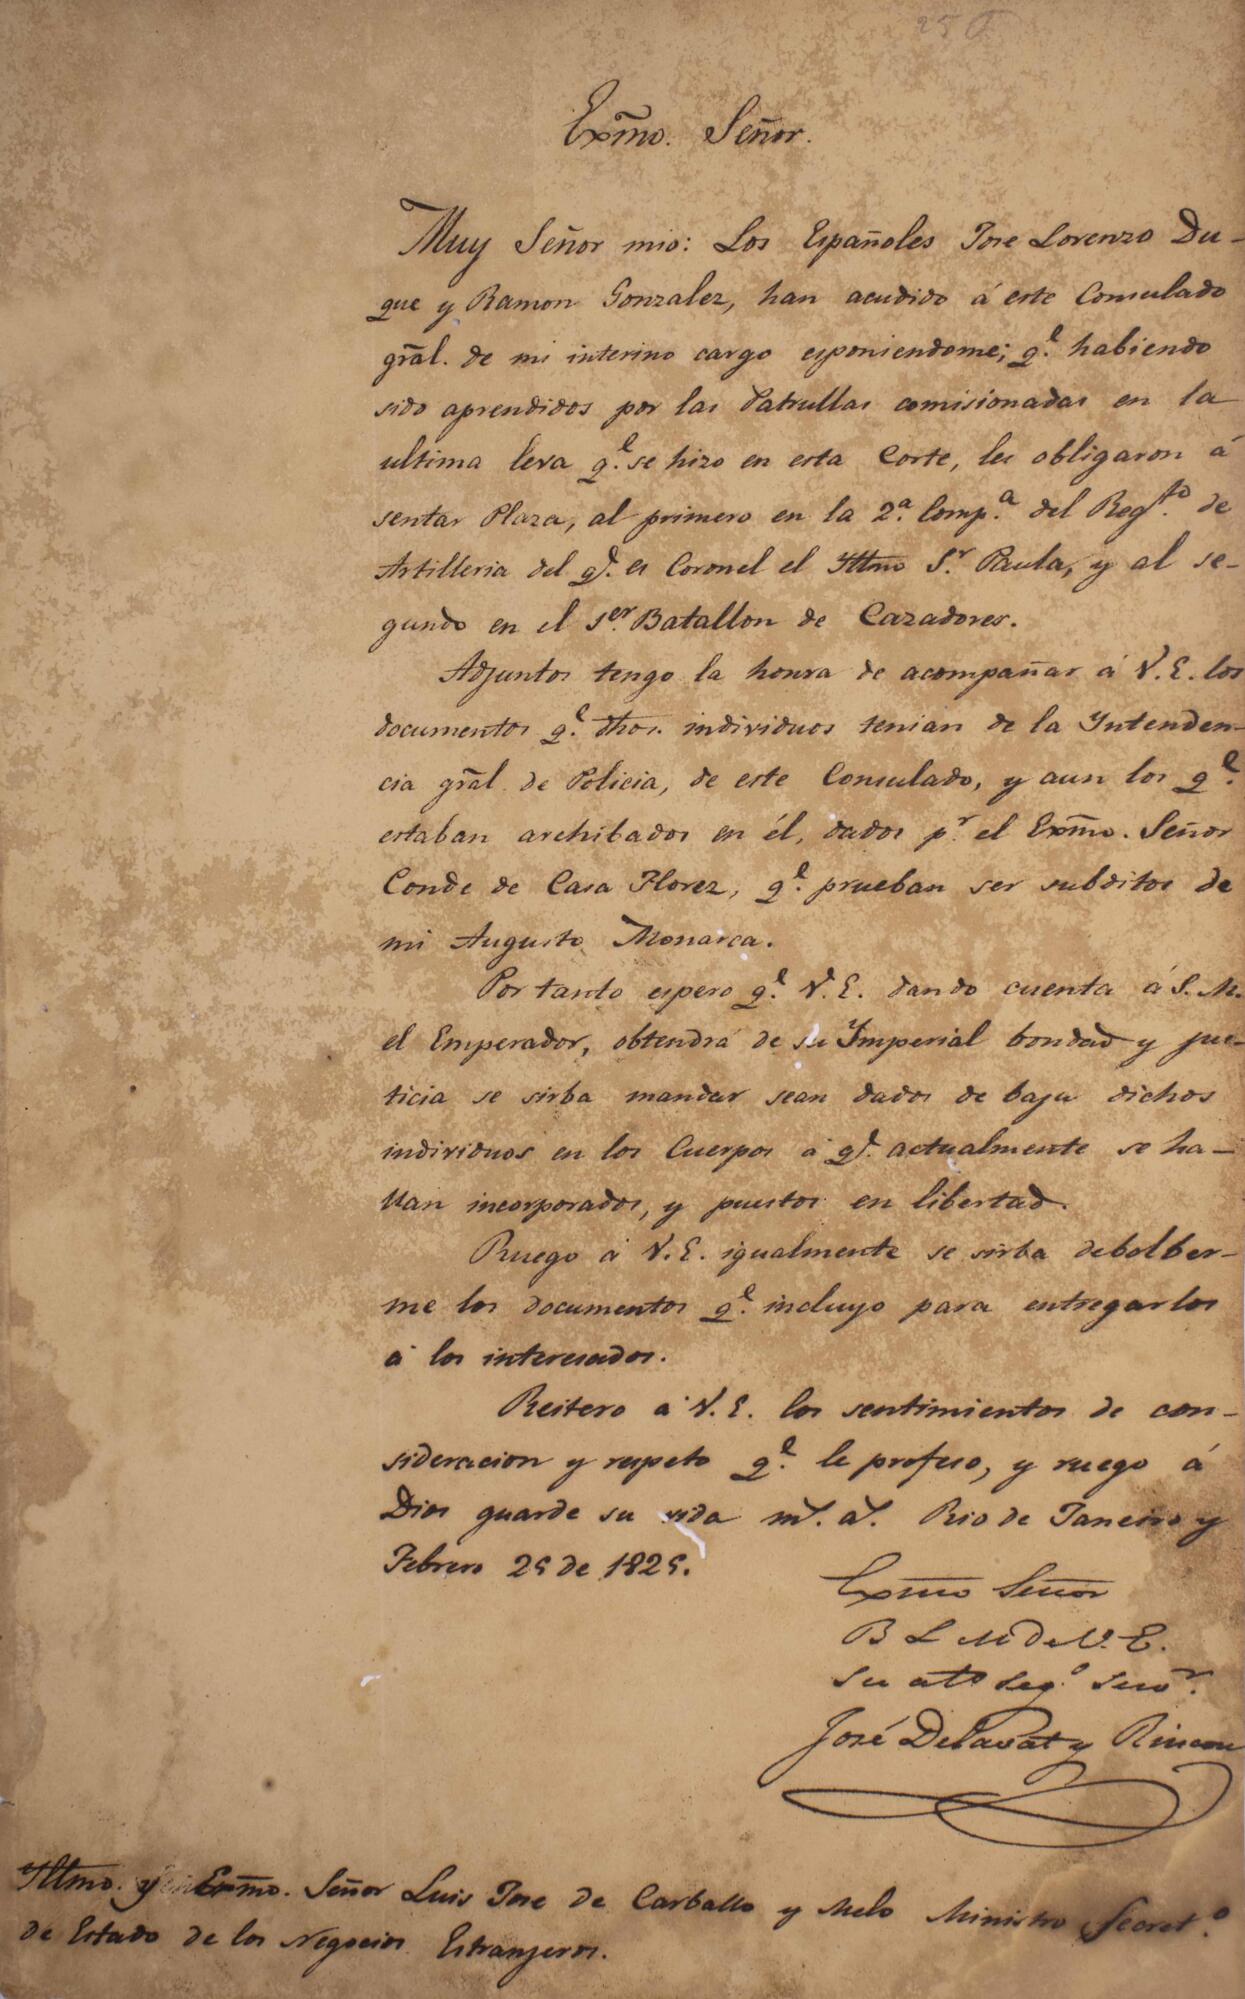 Exm̃o. Señor.
Muy Señor mio: Los Españoles Jose Lorenzo Du-
que y Ramon Gonzalez, han acudido á este Consulado
gr̃al. de mi interino cargo esponiendome; q.e habiendo
sido aprendidos por las Patrullas comisionadas en la
ultima leva q.e se hizo en esta Corte, les obligaron á
sentar Plaza, al primero en la 2.a Comp.a del Reg.to de
Artilleria del q.l es Coronel el Yltmo S.r Paula, y al se-
gundo en el 1.er Batallon de Cazadores.
Adjuntos tengo la honra de acompañar á V. E. los
documentos q.e dhos. individuos tenian de la Yntenden-
cia gr̃al. de Policia, de este Consulado, y aun los q.e
estaban archibados en él, dados p.r el Exm̃o. Señor
Conde de Casa Florez, q.e prueban ser subditos de
mi Augusto Monarca.
Por tanto espero q.e V. E. dando cuenta á S. M.
el Emperador, obtendrá de su Ymperial bondad y jus-
ticia se sirba mandar sean dados de baja dichos
individuos en los Cuerpos á q.e actualmente se ha-
llan incorporados, y puestos en libertad.
Ruego á V. E. igualmente se sirba debolber-
me los documentos q.e incluyo para entregarlos
á los interesados.
Reitero a V. E. los sentimientos de con-
sideracion y respeto q.e le profeso, y ruego á
Dios guarde su vida m.s a.s Rio de Janeiro y
Febrero 25 de 1825.
Exmo Señor
B L M de V. E.
su at.o seg.o serv.r
José Delavat y Rincon
Yltmo. y Exm̃o. Señor Luis Jose de Carballo y Melo Ministro Secret.o
de Estado de los Negocios Estranjeros.